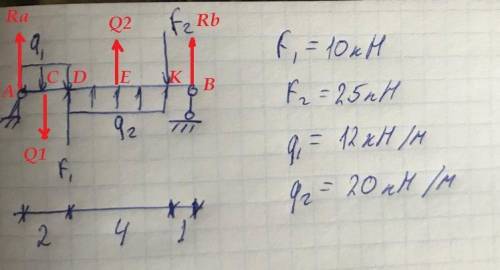 Ra
q₁
Q2
F₂
Rb
A
C
D
E
K
B
Q1
F₁
q₂
2
4
1
F₁ = 10кН
F₂ = 25кН
q₁ = 12кН/м
q₂ = 20кН/м